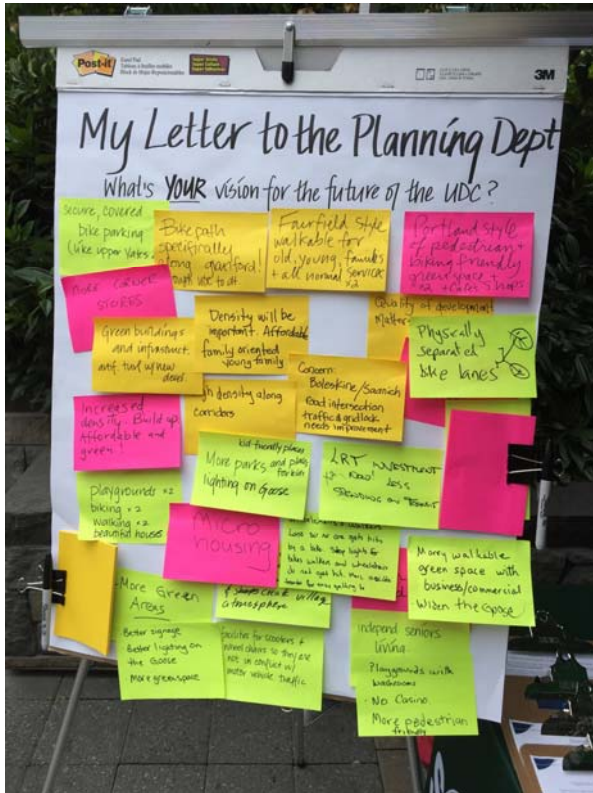 Post-it
3M
My Letter to the Planning Dept
What's YOUR vision for the future of the UDC?
secure, covered
bike parking
(like upper Yates.)
Bike path
specifically
along
Fairfield style
walkable for
old, young, families
+ all normal services
x2
Portland style
of pedestrian +
biking friendly
greenspace +
x2 + Cafes + Shops
MORE CORNER
STORES
Green buildings
and infrastruct.
w/ new
devel.
Density will be
important. Affordable
family oriented
young family
Quality of development
Matters
Physically
separated
bike lanes
Concern:
Boleskine/Saanich
Road intersection
traffic gridlock
needs improvement
density along
corridors
Increased
density. Build up.
Affordable and
green!
kid friendly places
More parks and
for kids
lighting on Goose
LRT INVESTMENT
LESS
SPENDING ON
playgrounds x2
biking x2
walking x2
beautiful houses
MICRO
housing
by a bike.
bikes walkers and wheelchairs
do not get hit. More accessible
Marry walkable
green space with
business/commercial
Widen the Goose
- More Green
Areas
Better signage
Better lighting on
the Goose
More greenspace
village
atmosphere
for scooters +
wheel chairs so they are
not in conflict w/
motor vehicle traffic.
independ seniors
living.
Playgrounds with
washrooms
- No Casino
- More pedestrian
friendly